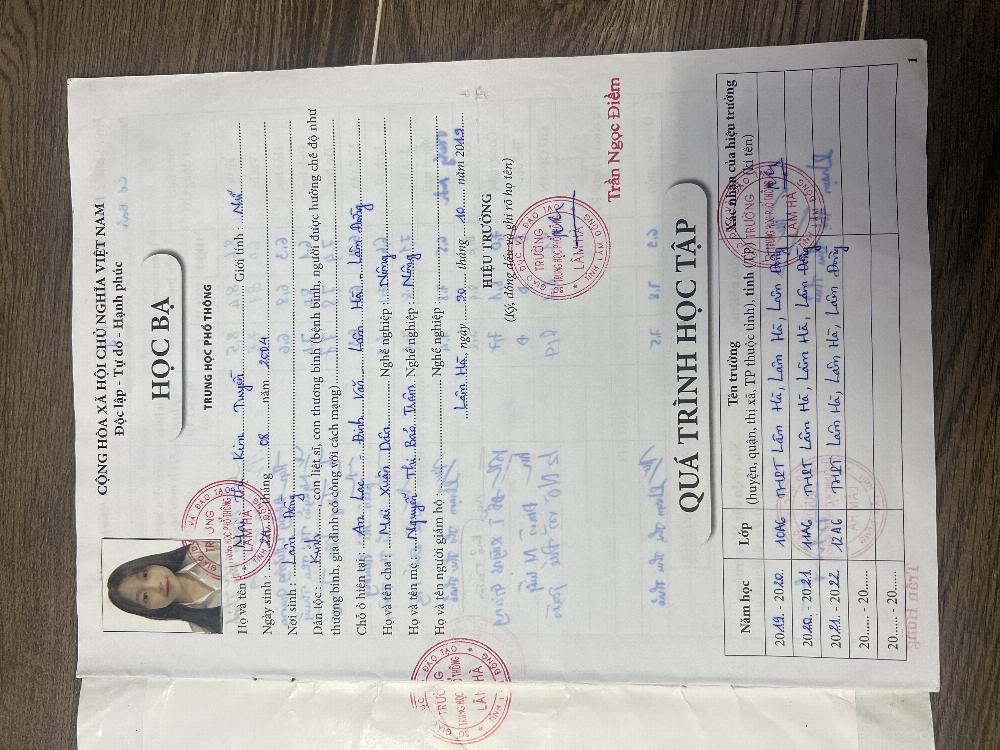 CỘNG HÒA XÃ HỘI CHỦ NGHĨA VIỆT NAM
Độc lập - Tự do - Hạnh phúc
HỌC BẠ
TRUNG HỌC PHỔ THÔNG
Họ và tên : Mai Thị Kim Duyên Giới tính : Nữ
Ngày sinh : tháng 08 năm 2004
Nơi sinh : Lâm Đồng
Dân tộc : Kinh, con liệt sĩ, con thương binh (bệnh binh, người được hưởng chế độ như
thương binh, gia đình có công với cách mạng)
Chỗ ở hiện tại : An Lạc Đinh Văn Lâm Hà Lâm Đồng
Họ và tên cha : Mai Xuân Dần Nghề nghiệp : Nông
Họ và tên mẹ : Nguyễn Thị Bảo Trâm Nghề nghiệp : Nông
Họ và tên người giám hộ : Nghề nghiệp :
Lâm Hà, ngày 20 tháng 10 năm 2019
HIỆU TRƯỞNG
(Ký, đóng dấu và ghi rõ họ tên)
Trần Ngọc Điềm
QUÁ TRÌNH HỌC TẬP
Năm học Lớp Tên trường (huyện, quận, thị xã, TP thuộc tỉnh), tỉnh (TP) Xác nhận của hiệu trưởng (kí tên)
2019 - 2020 10A6 THPT Lâm Hà, Lâm Hà, Lâm Đồng
2020 - 2021 11A6 THPT Lâm Hà, Lâm Hà, Lâm Đồng
2021 - 2022 12A6 THPT Lâm Hà, Lâm Hà, Lâm Đồng
20...... - 20......
20...... - 20......
1